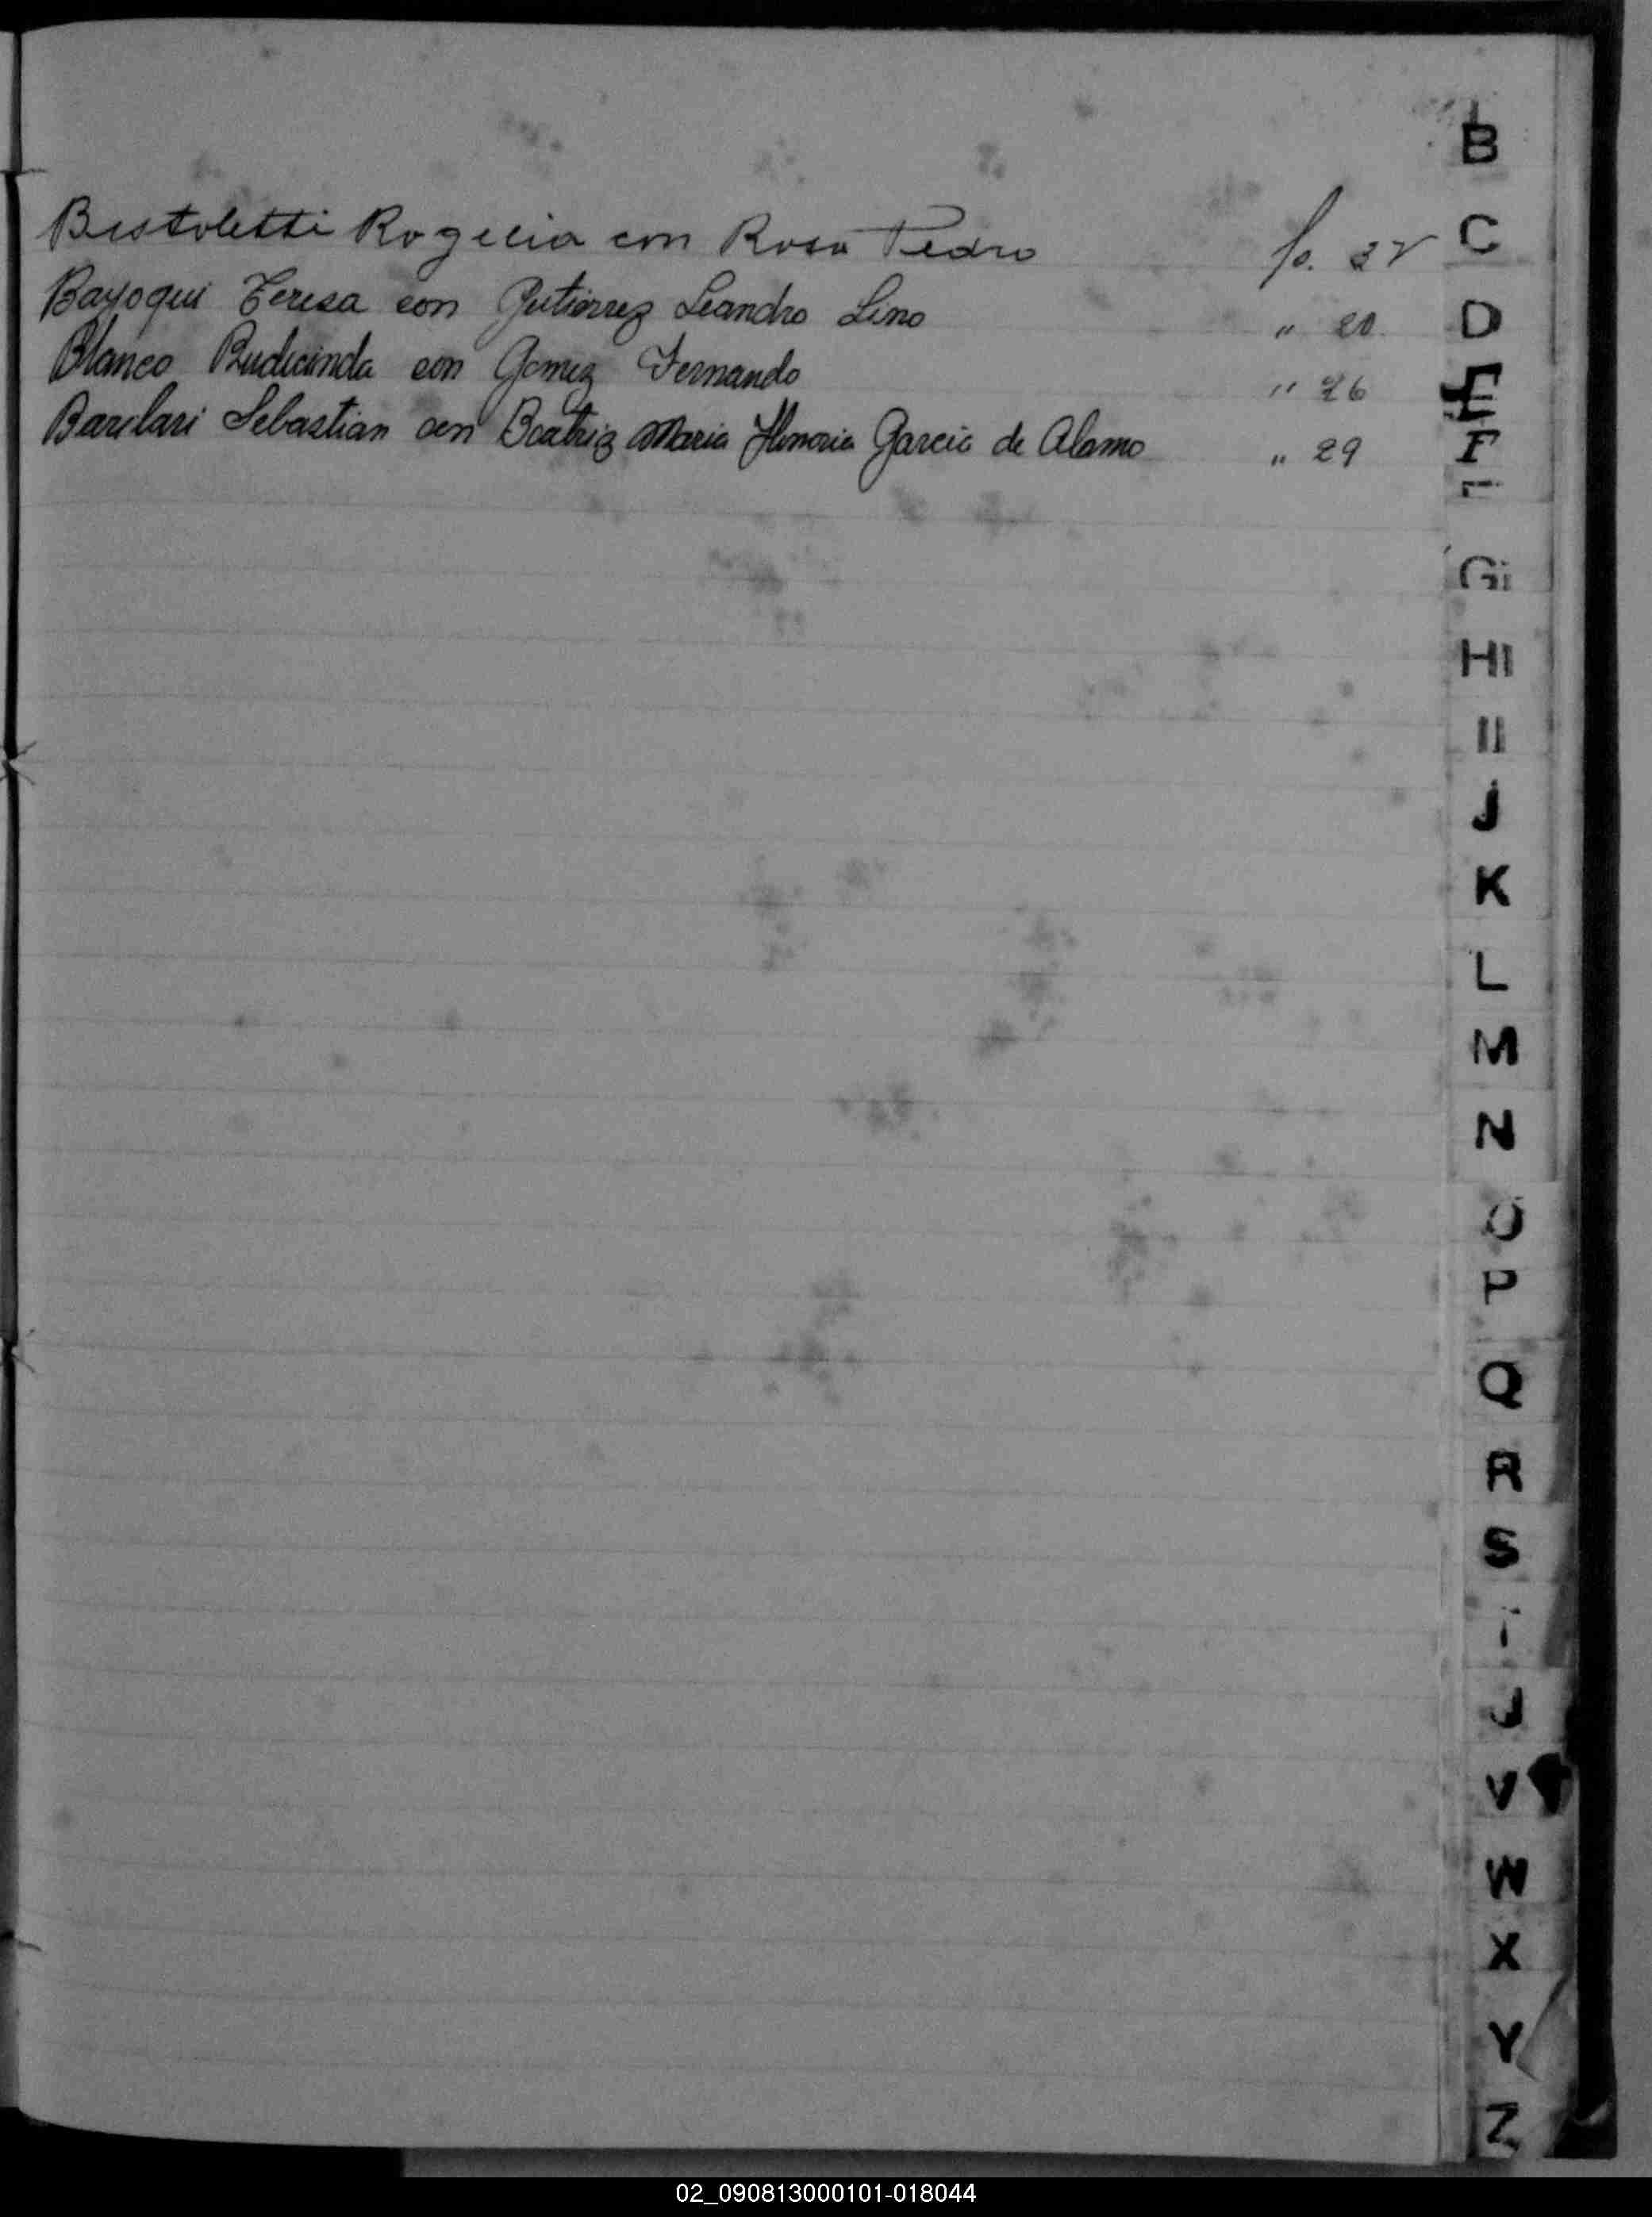 B
Bistoletti Rogelia con Rosa Pedro fo. 2v
Bayoqui Teresa con Gutierrez Leandro Lino " 20
Blanco Rudecinda con Gomez Fernando " 26
Barilari Sebastian con Beatriz Maria Honoria Garcia de Alamo " 29
C
D
E
F
G
H
I
J
K
L
M
N
O
P
Q
R
S
V
W
X
Y
Z
02_090813000101-018044